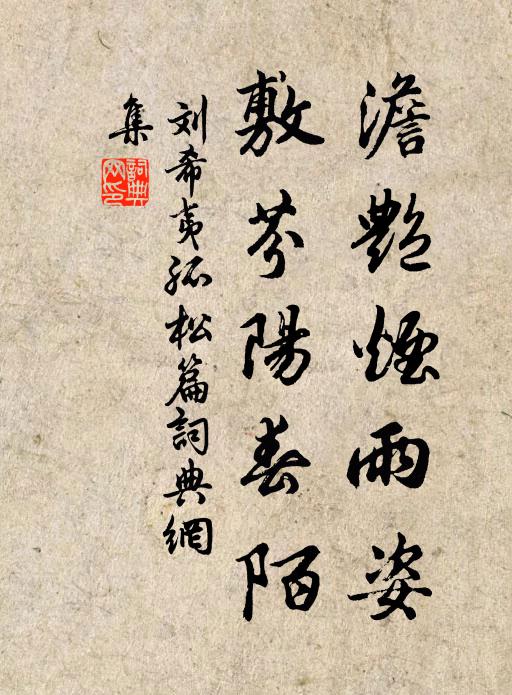 澹艷煙雨姿
敷芬陽春陌
刘希夷孤松篇詞典網
集
詞典網印